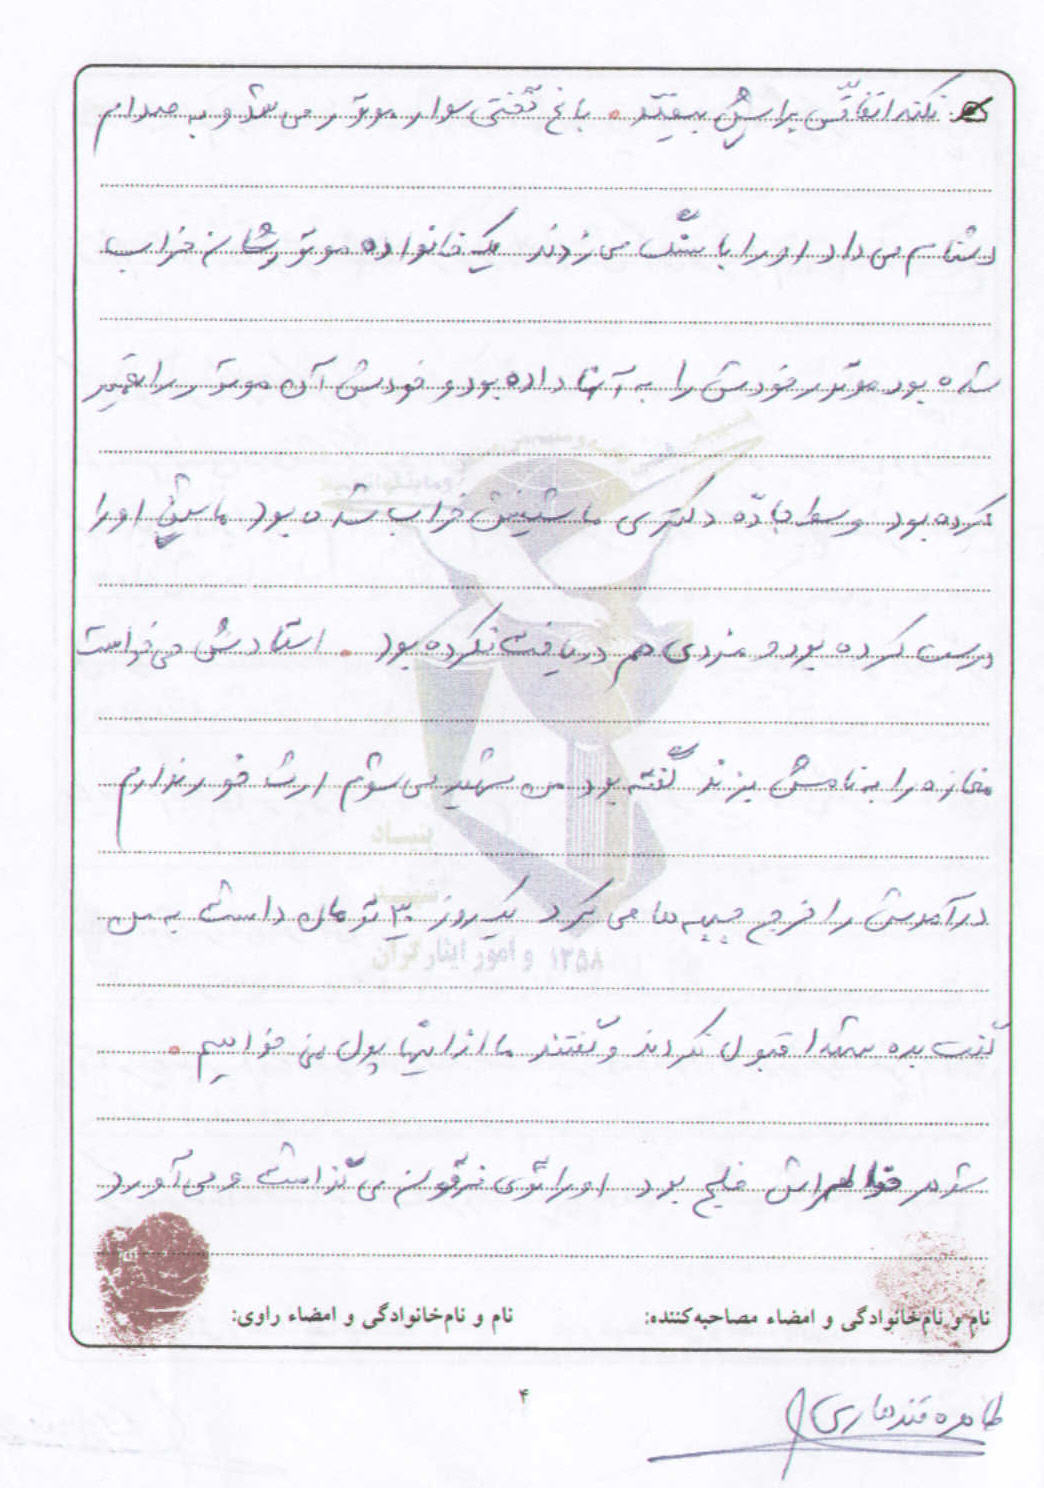 که نکند اتفاقی برایش بیفتد . باغ تختی سوار موتور می شد و به صدام
دشنام می داد او را با سنگ می زدند یک خانواده موتورشان خراب
شده بود موتور خودش را به آنها داده بود و خودش آن موتور را تعمیر
کرده بود وسط جاده دکتری ماشینش خراب شده بود ماشین او را
درست کرده بود و مزدی هم دریافت نکرده بود . استادش می خواست
مغازه را به نامش بزند گفته بود من شهید می شوم ارث خور ندارم
درآمدش را خرج جبهه ها می کرد یک روز ۳۰ تومان داشت به من
گفت بده شهدا قبول نکردند و گفتند ما از اینها پول نمی خواهیم .
شوهر خواهرش فلج بود او را توی فرقون می گذاشت و می آورد
بنیاد
شهید
و امور ایثارگران ۱۳۵۸
نام و نام‌خانوادگی و امضاء مصاحبه‌کننده: نام و نام‌خانوادگی و امضاء راوی:
۴
طاهره قندهاری